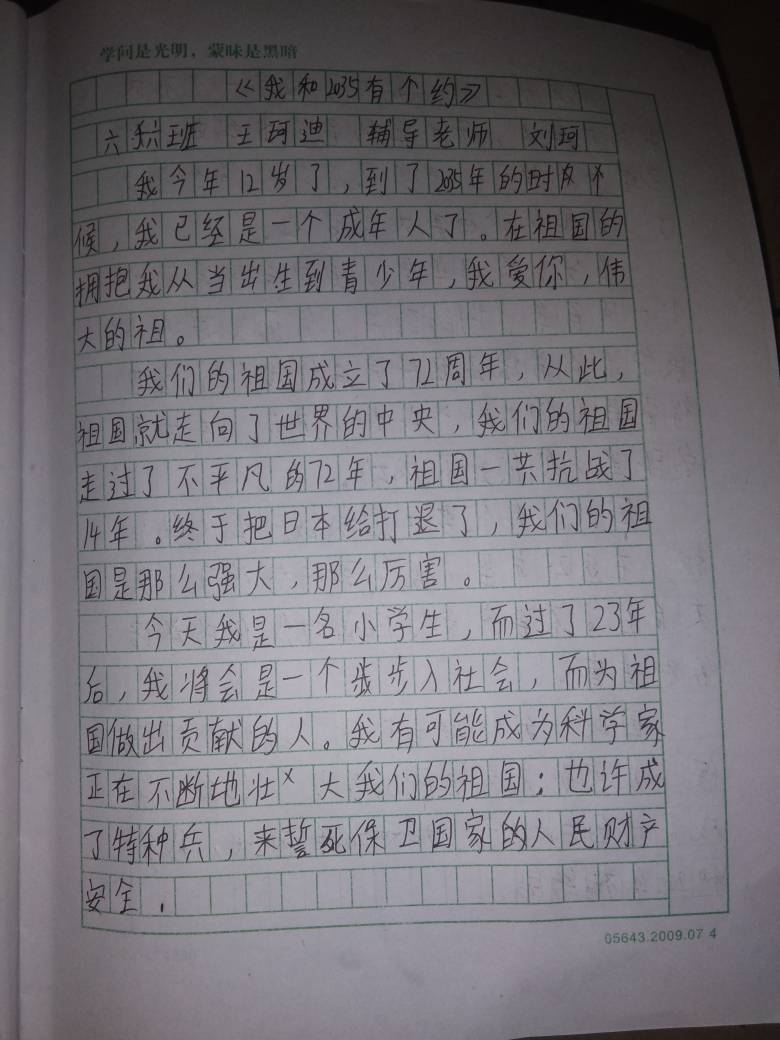 学问是光明，蒙昧是黑暗
《我和2035有个约》
六 班 王珂迪 辅导老师 刘珂
我今年12岁了，到了2035年的时
候，我已经是一个成年人了。在祖国的
拥抱我从当出生到青少年，我爱你，伟
大的祖。
我们的祖国成立了72周年，从此，
祖国就走向了世界的中央，我们的祖国
走过了不平凡的72年，祖国一共抗战了
14年。终于把日本给打退了，我们的祖
国是那么强大，那么厉害。
今天我是一名小学生，而过了23年
后，我将会是一个步步入社会，而为祖
国做出贡献的人。我有可能成为科学家
正在不断地壮大我们的祖国；也许成
了特种兵，来誓死保卫国家的人民财产
安全．
05643.2009.07 4